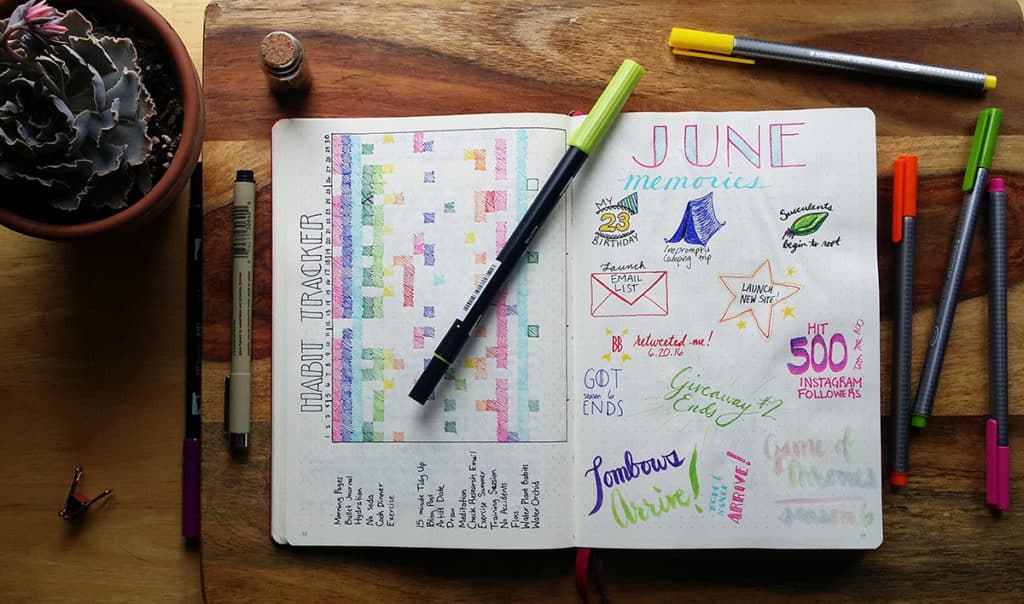 HABIT TRACKER
1 2 3 4 5 6 7 8 9 10 11 12 13 14 15 16 17 18 19 20 21 22 23 24 25 26 27 28 29 30
Morning Pages
Bullet Journal
Hydration
No Soda
Cook Dinner
Exercise
15 minute Tidy Up
Blog Post
Artist Date
Draw
Meditation
Check Research Email
Exercise Summer
Training Session
No Accidents
Floss
Water Plant Babies
Water Orchid
JUNE
memories
MY
23
BIRTHDAY
Impromptu
Camping trip
Succulents
begin to root
Launch
EMAIL
LIST
LAUNCH
NEW SITE!
BB
retweeted me!
6.20.16
HIT
500
INSTAGRAM
FOLLOWERS
GOT
season 6
ENDS
Giveaway #2
Ends
Tombows
Arrive!
ARRIVE!
Game of
Thrones
season 6